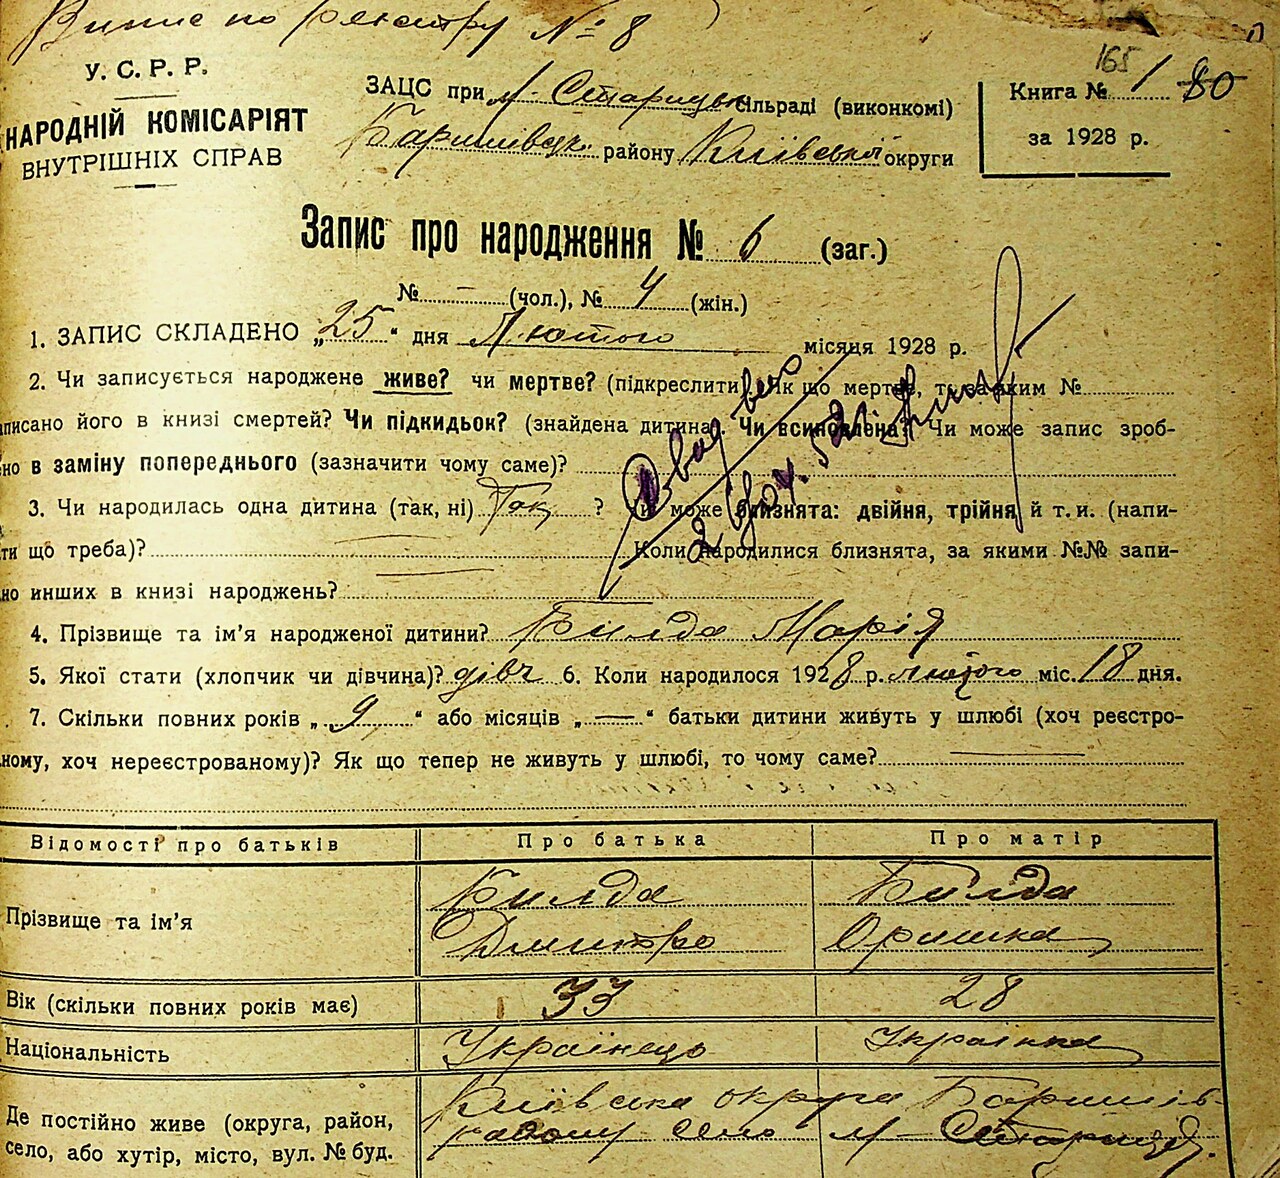 Випис по реєстру № 8
165
У. С. Р. Р.
НАРОДНІЙ КОМІСАРІЯТ
ВНУТРІШНІХ СПРАВ
ЗАЦС при м. Старицьк сільраді (виконкомі)
Баришівськ. району Київської округи
Книга № 1 80
за 1928 р.
Запис про народження № 6 (заг.)
№ — (чол.), № 4 (жін.)
1. ЗАПИС СКЛАДЕНО „25“ дня Лютого місяця 1928 р.
2. Чи записується народжене живе? чи мертве? (підкреслити). Як що мертве, то за яким №
аписано його в книзі смертей? Чи підкидьок? (знайдена дитина). Чи всиновлена? Чи може запис зроб-
но в заміну попереднього (зазначити чому саме)?
3. Чи народилась одна дитина (так, ні) Так ? Чи може близнята: двійня, трійня й т. и. (напи-
ти що треба)? Коли народилися близнята, за якими №№ запи-
но инших в книзі народжень?
4. Прізвище та ім’я народженої дитини? Билда Марія
5. Якої стати (хлопчик чи дівчина)? дівч 6. Коли народилося 1928 р. лютого міс. 18 дня.
7. Скільки повних років „ 9 “ або місяців „ — “ батьки дитини живуть у шлюбі (хоч реєстро-
ному, хоч нереєстрованому)? Як що тепер не живуть у шлюбі, то чому саме? —
Відомості про батьків Про батька Про матір
Прізвище та ім’я Билда Дмитро Билда Оришка
Вік (скільки повних років має) 33 28
Національність Українець Українка
Де постійно живе (округа, район, Київська округа Баришів
село, або хутір, місто, вул. № буд. району село м-Стариця.